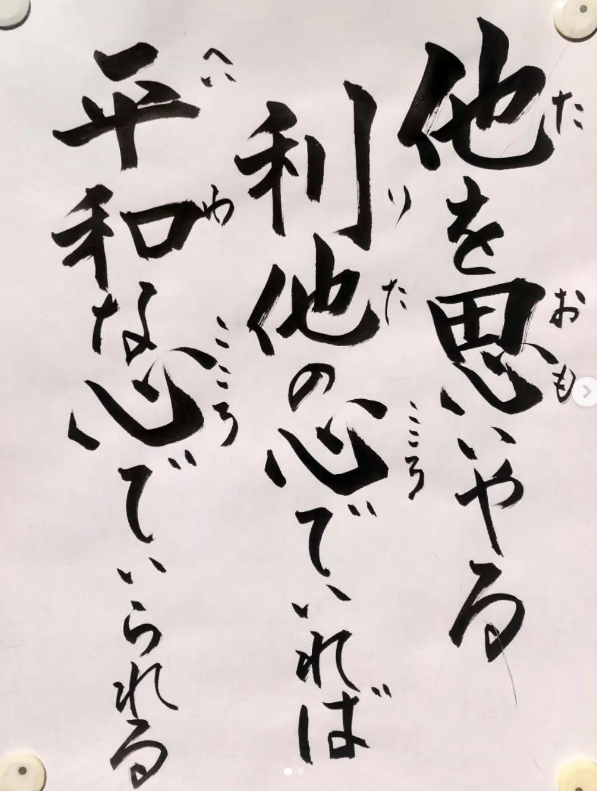 他を思いやる
利他の心でいれば
平和な心でいられる
た
おも
り
た
こころ
へい
わ
こころ